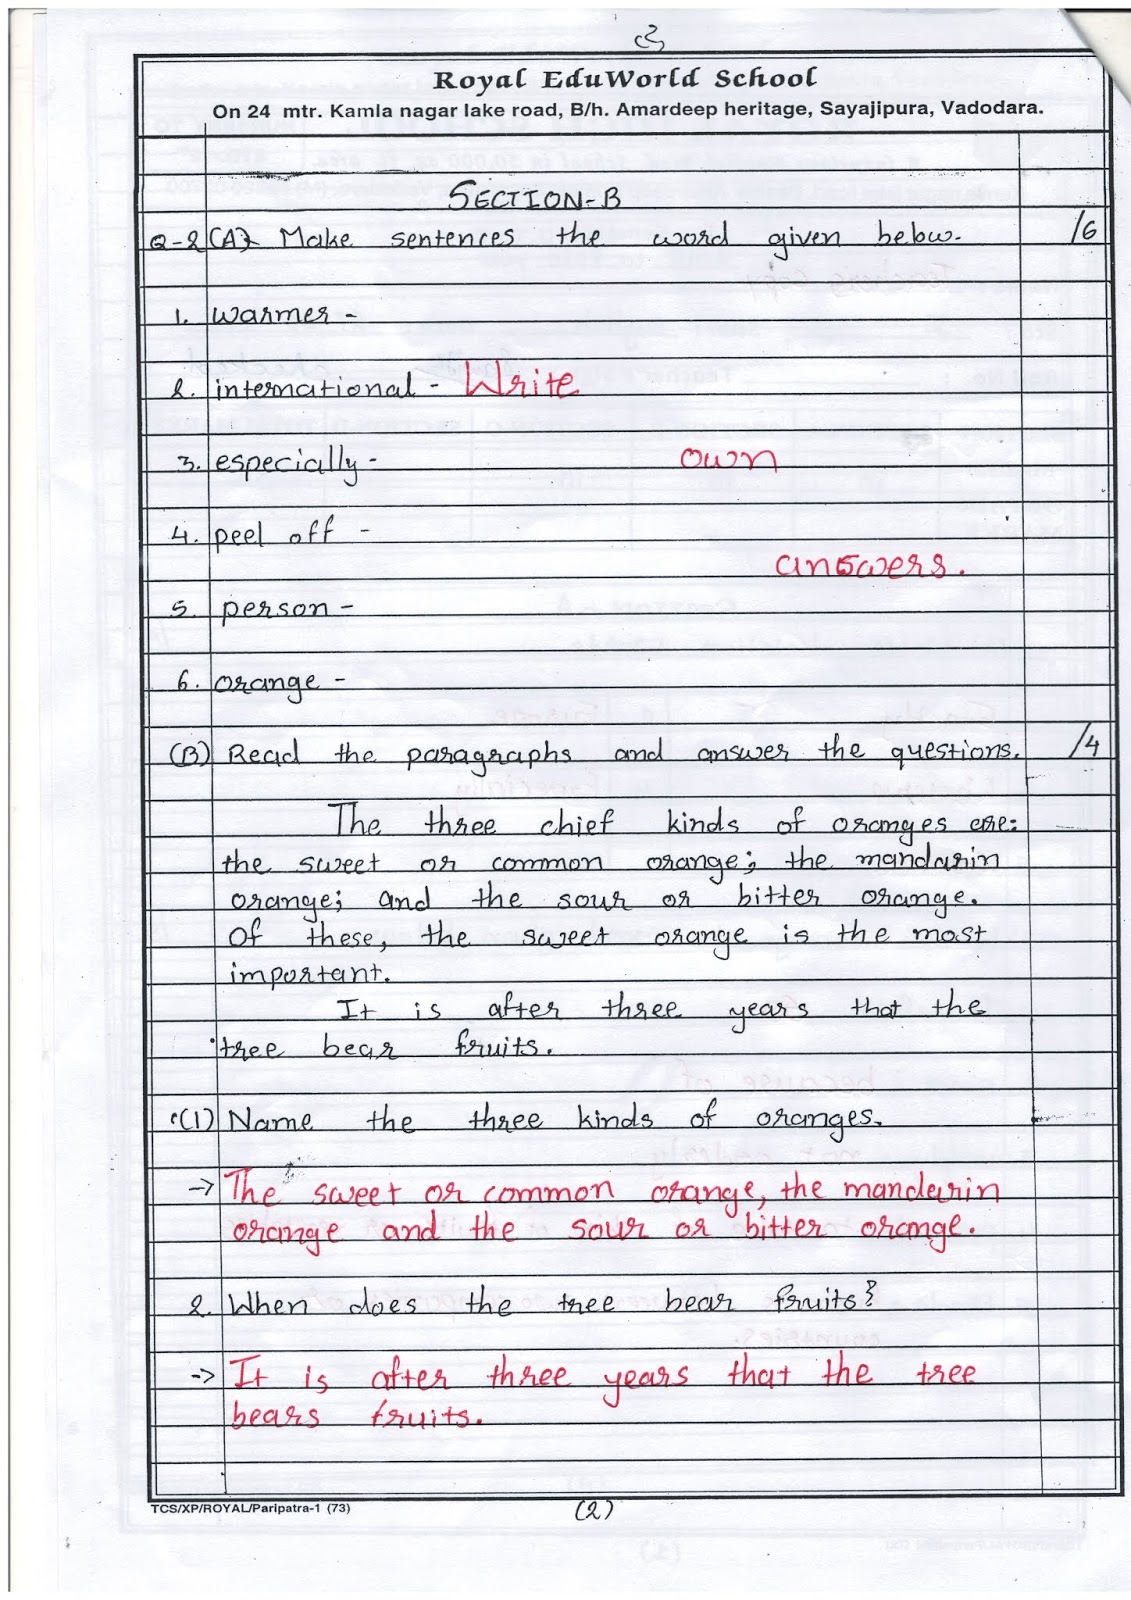 Royal EduWorld School
On 24 mtr. Kamla nagar lake road, B/h. Amardeep heritage, Sayajipura, Vadodara.
SECTION-B
Q-2 (A) Make sentences the word given below. /6
1. warmer -
2. international - Write
3. especially - own
4. peel off -
answers.
5. person -
6. orange -
(B) Read the paragraphs and answer the questions. /4
The three chief kinds of oranges are:
the sweet or common orange; the mandarin
orange; and the sour or bitter orange.
Of these, the sweet orange is the most
important.
It is after three years that the
tree bear fruits.
(1) Name the three kinds of oranges.
→ The sweet or common orange, the mandarin
orange and the sour or bitter orange.
2. When does the tree bear fruits?
→ It is after three years that the tree
bears fruits.
TCS/XP/ROYAL/Paripatra-1 (73) (2)